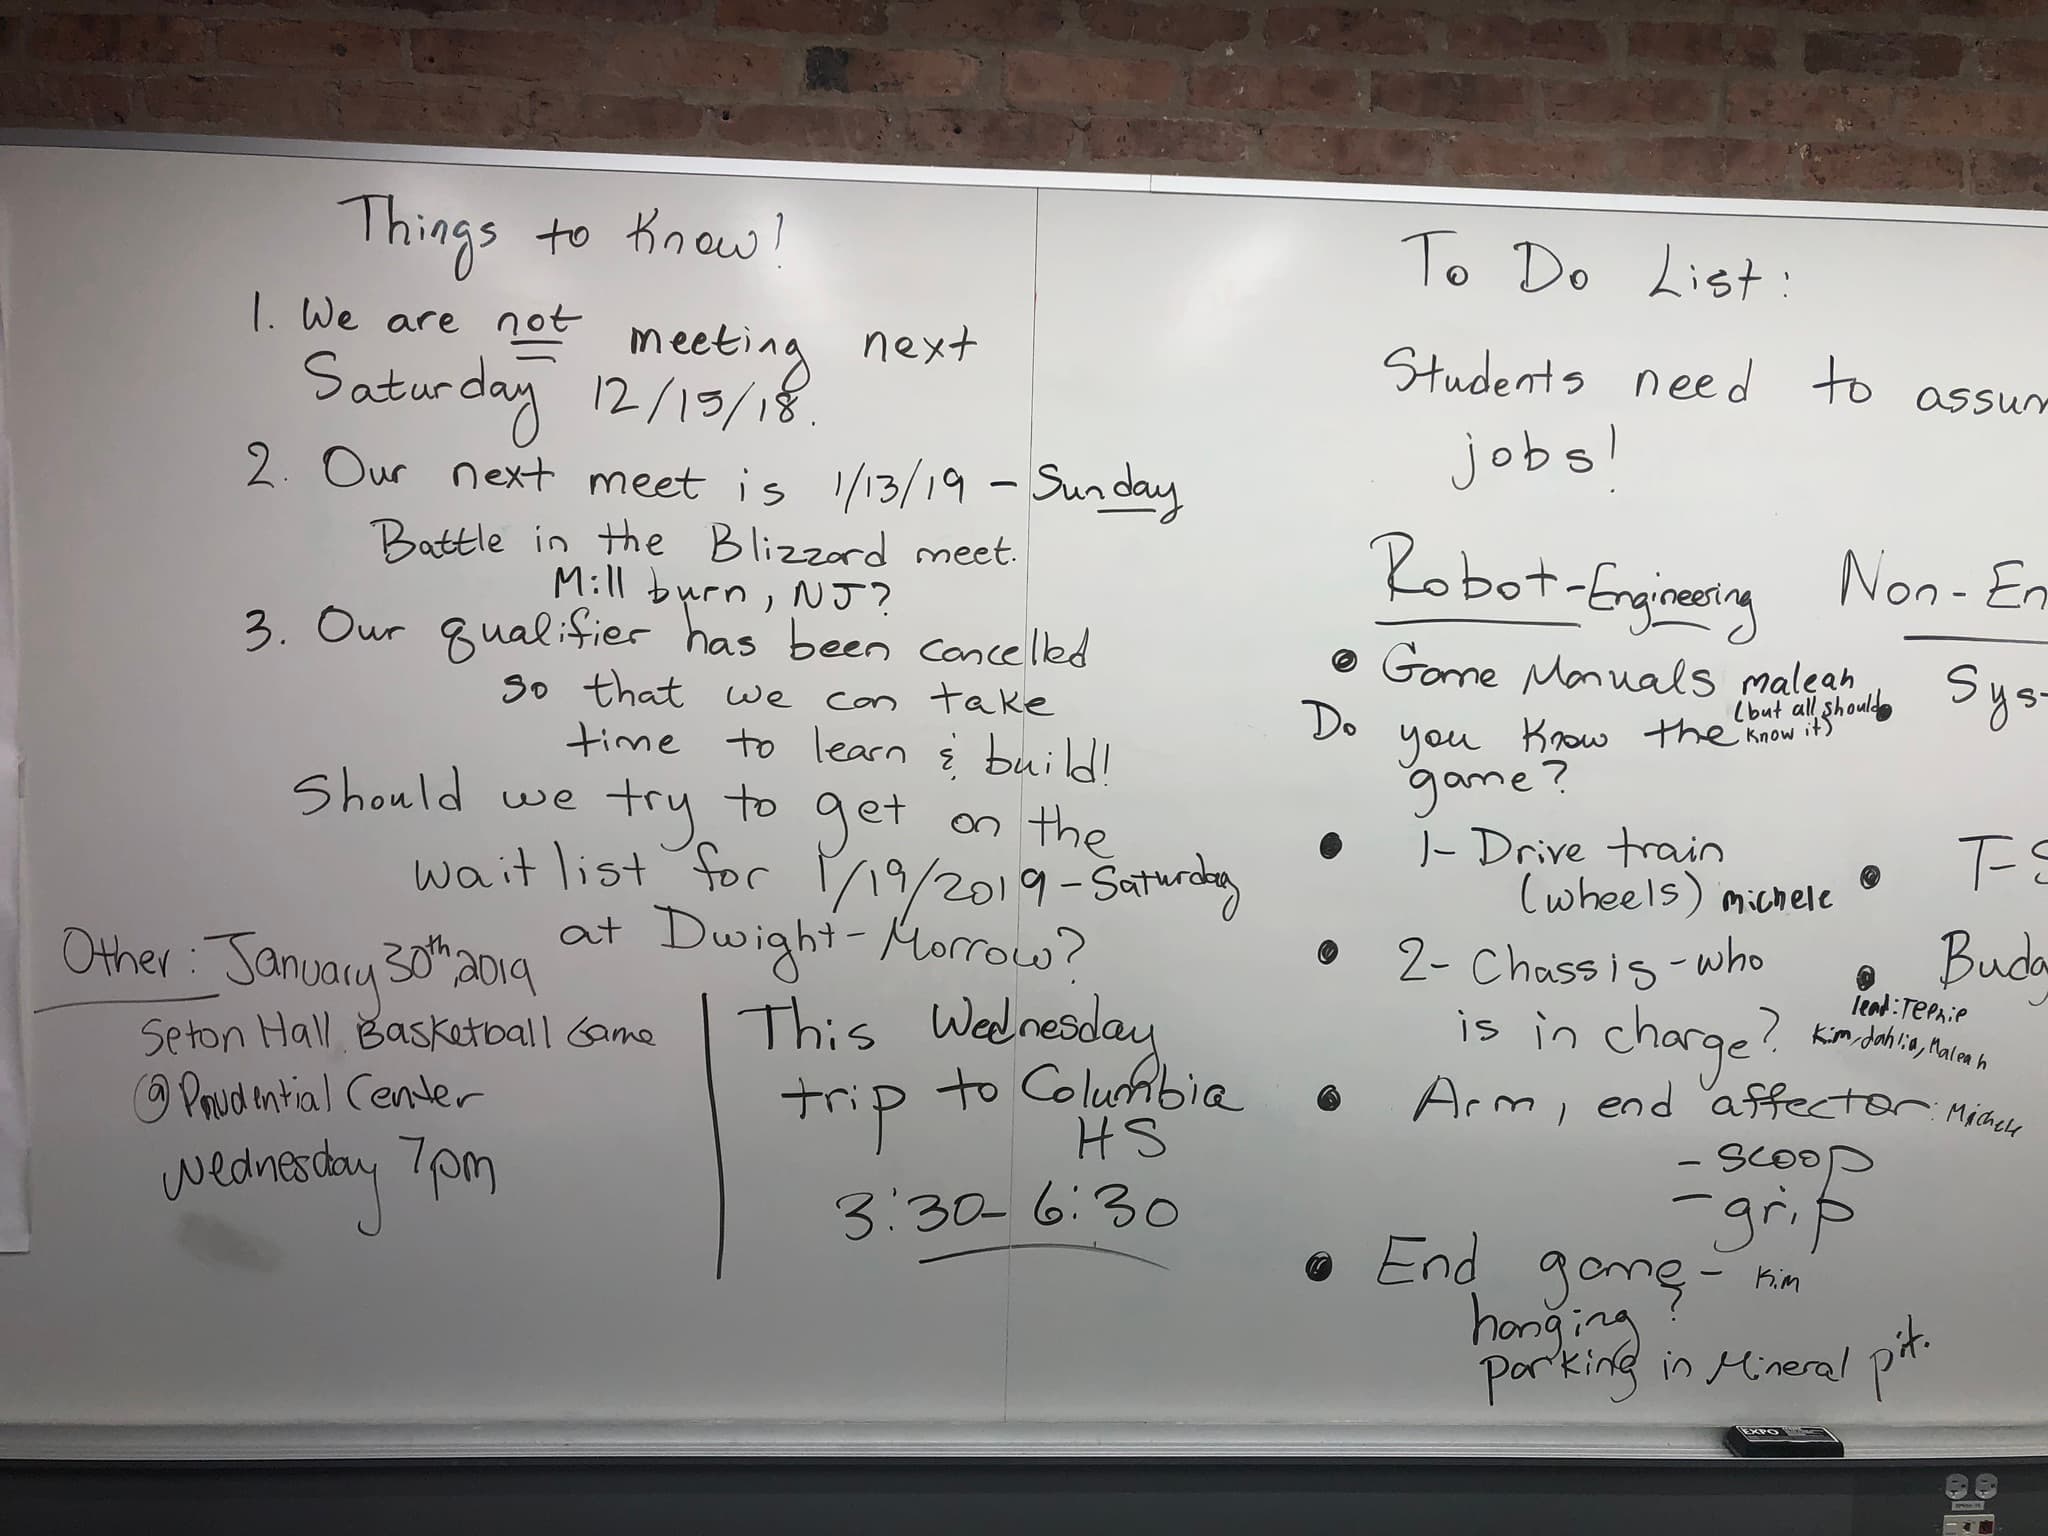 Things to Know!
1. We are not meeting next
Saturday 12/15/18.
2. Our next meet is 1/13/19 - Sunday
Battle in the Blizzard meet.
Millburn, NJ?
3. Our qualifier has been cancelled
so that we can take
time to learn & build!
Should we try to get on the
waitlist for 1/19/2019 - Saturday
at Dwight-Morrow?
Other: January 30th, 2019
Seton Hall Basketball Game
@ Prudential Center
Wednesday 7pm
This Wednesday
trip to Columbia
HS
3:30-6:30
To Do List:
Students need to assum
jobs!
Robot-Engineering
• Game Manuals maleah
(but all should
know it)
Do you know the
game?
• 1- Drive train
(wheels) michele
• 2- Chassis - who
is in charge?
• Arm, end affector: Michele
- scoop
- grip
• End game - Kim
hanging?
parking in Mineral pit.
Non-En
• Sys-
• T-S
• Budg
lead: Teenie
Kim, dahlia, Maleah
EXPO